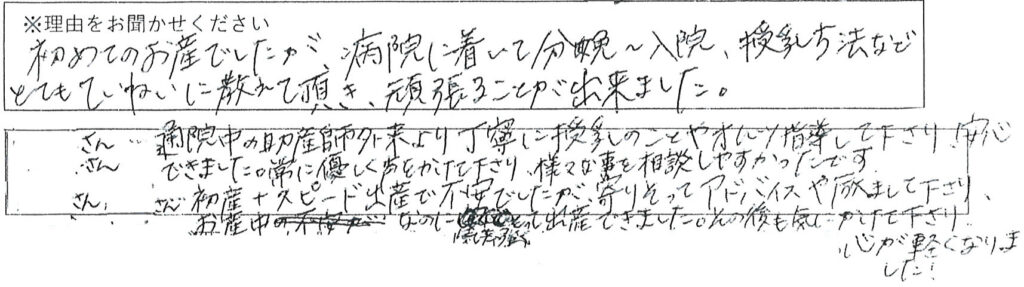 ※理由をお聞かせください
初めてのお産でしたが、病院に着いて分娩～入院、授乳方法など
とてもていねいに教えて頂き、頑張ることが出来ました。
さん 通院中の助産師外来より丁寧に授乳のことやオムツ指導して下さり安心
さん できました。常に優しく声をかけて下さり、様々な事を相談しやすかったです
さん、 さん 初産＋スピード出産で不安でしたが、寄りそってアドバイスや励まして下さり、
お産中 なのに 出産できました。その後も気にかけて下さり
心が軽くなりま
した！